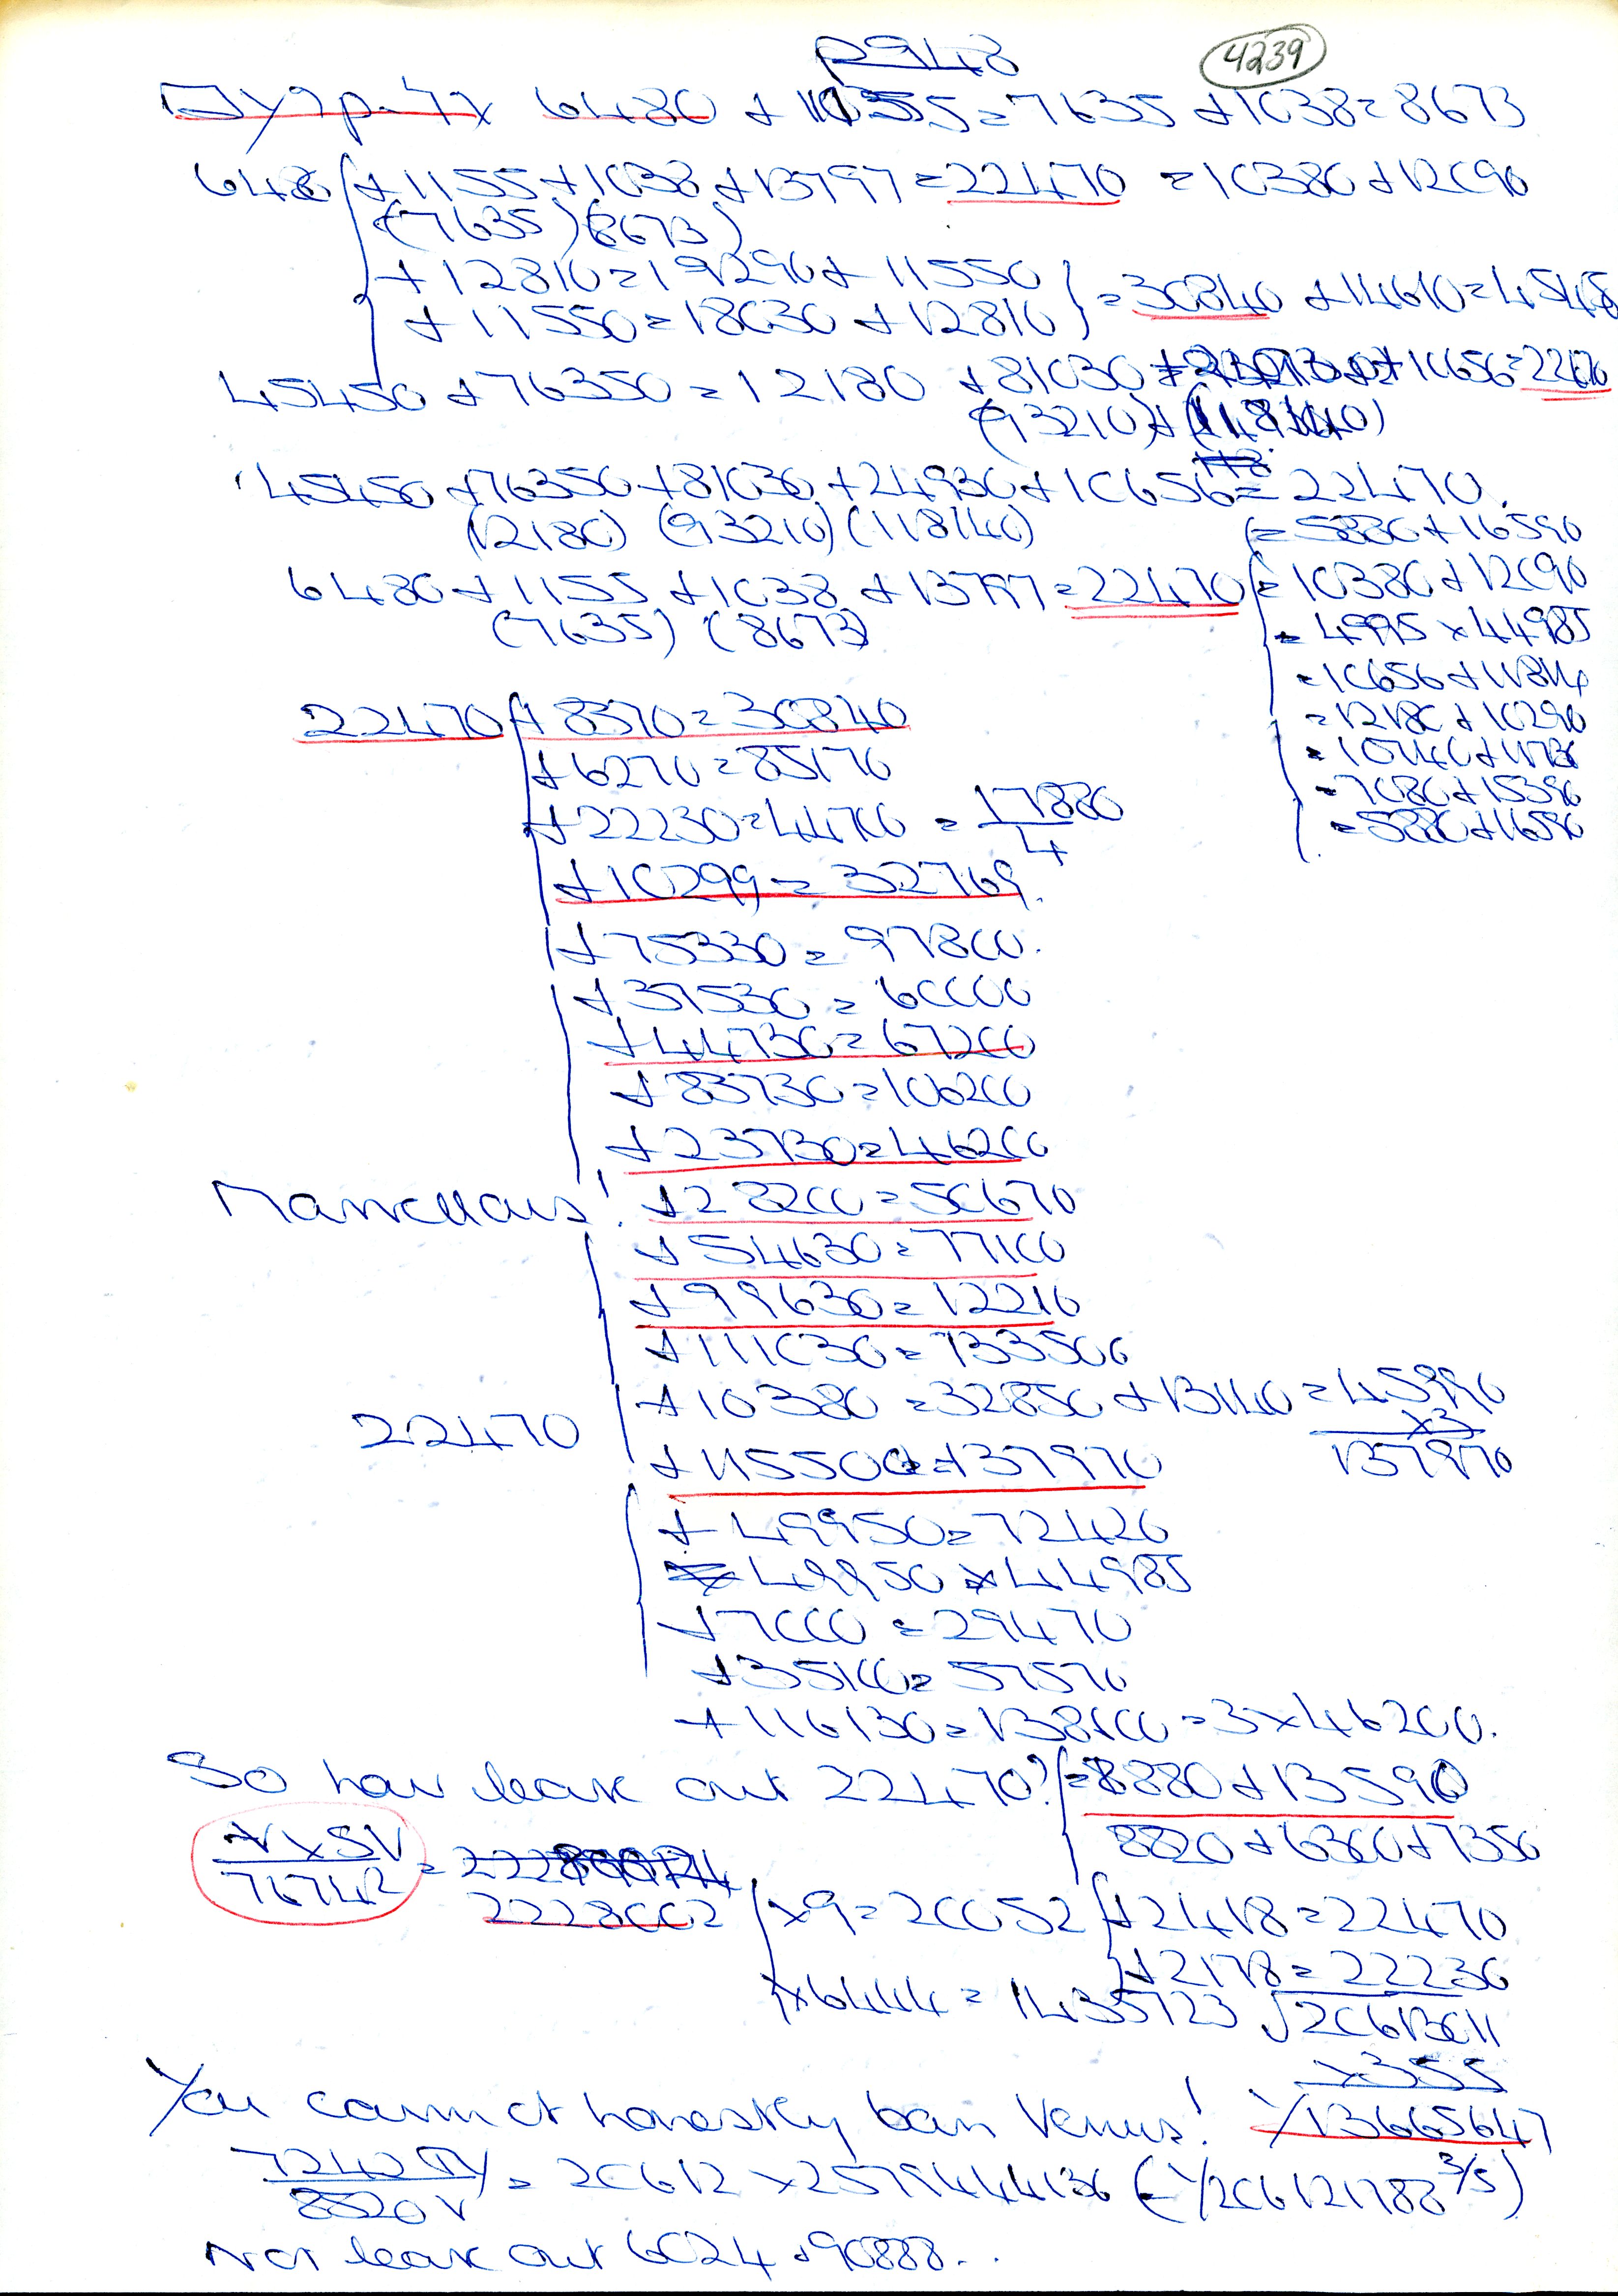 p948
4239
6480 + 1155 = 7635 + 1038 = 8673
6480 + 1155 + 1038 + 13797 = 22470 = 10380 + 12090
(7635) (8673)
+ 12810 = 19290 + 11550
+ 11550 = 18030 + 12810 = 30840 + 14610 = 4545
45450 + 76350 = 12180 + 81030 + 10656 = 22470
(93210) + (118140)
45450 + 76350 + 81030 + 24930 + 10656 = 22470.
(12180) (93210) (118140)
= 5880 + 16590
6480 + 1155 + 1038 + 13797 = 22470 = 10380 + 12090
(7635) (8673)
= 4995 x 44985
= 10656 + 11814
= 12180 + 10290
= 10740 + 11730
= 7080 + 15390
= 5880 + 16590
22470 + 8370 = 30840
+ 6270 = 85170
+ 22230 = 44700 = 17880
4
+ 10299 = 32769.
+ 75330 = 97800.
+ 37530 = 60000
+ 44730 = 67200
+ 83730 = 106200
+ 23730 = 46200
Marvellous! + 28200 = 50670
+ 54630 = 77100
+ 99630 = 12210
+ 111030 = 133500
22470 + 10380 = 32850 + 13140 = 45990
x3
137970
+ 115500 = 137970
+ 49950 = 72420
= 49950 x 44985
+ 7000 = 29470
+ 35100 = 57570
+ 116130 = 138600 = 3 x 46200.
So how leave out 22470? = 8880 + 13590
8820 + 6300 + 7350
V x SV
76742 = 2228002 x 9 = 20052 + 2418 = 22470
+ 2178 = 22230
x 6444 = 1435723 √20613011
x355
You cannot honestly ban Venus! 1/13665647
7242 TY
8520 V = 20612 x 2579444136 (= 1/206121788 3/5)
Nor leave out 6024 + 90888..